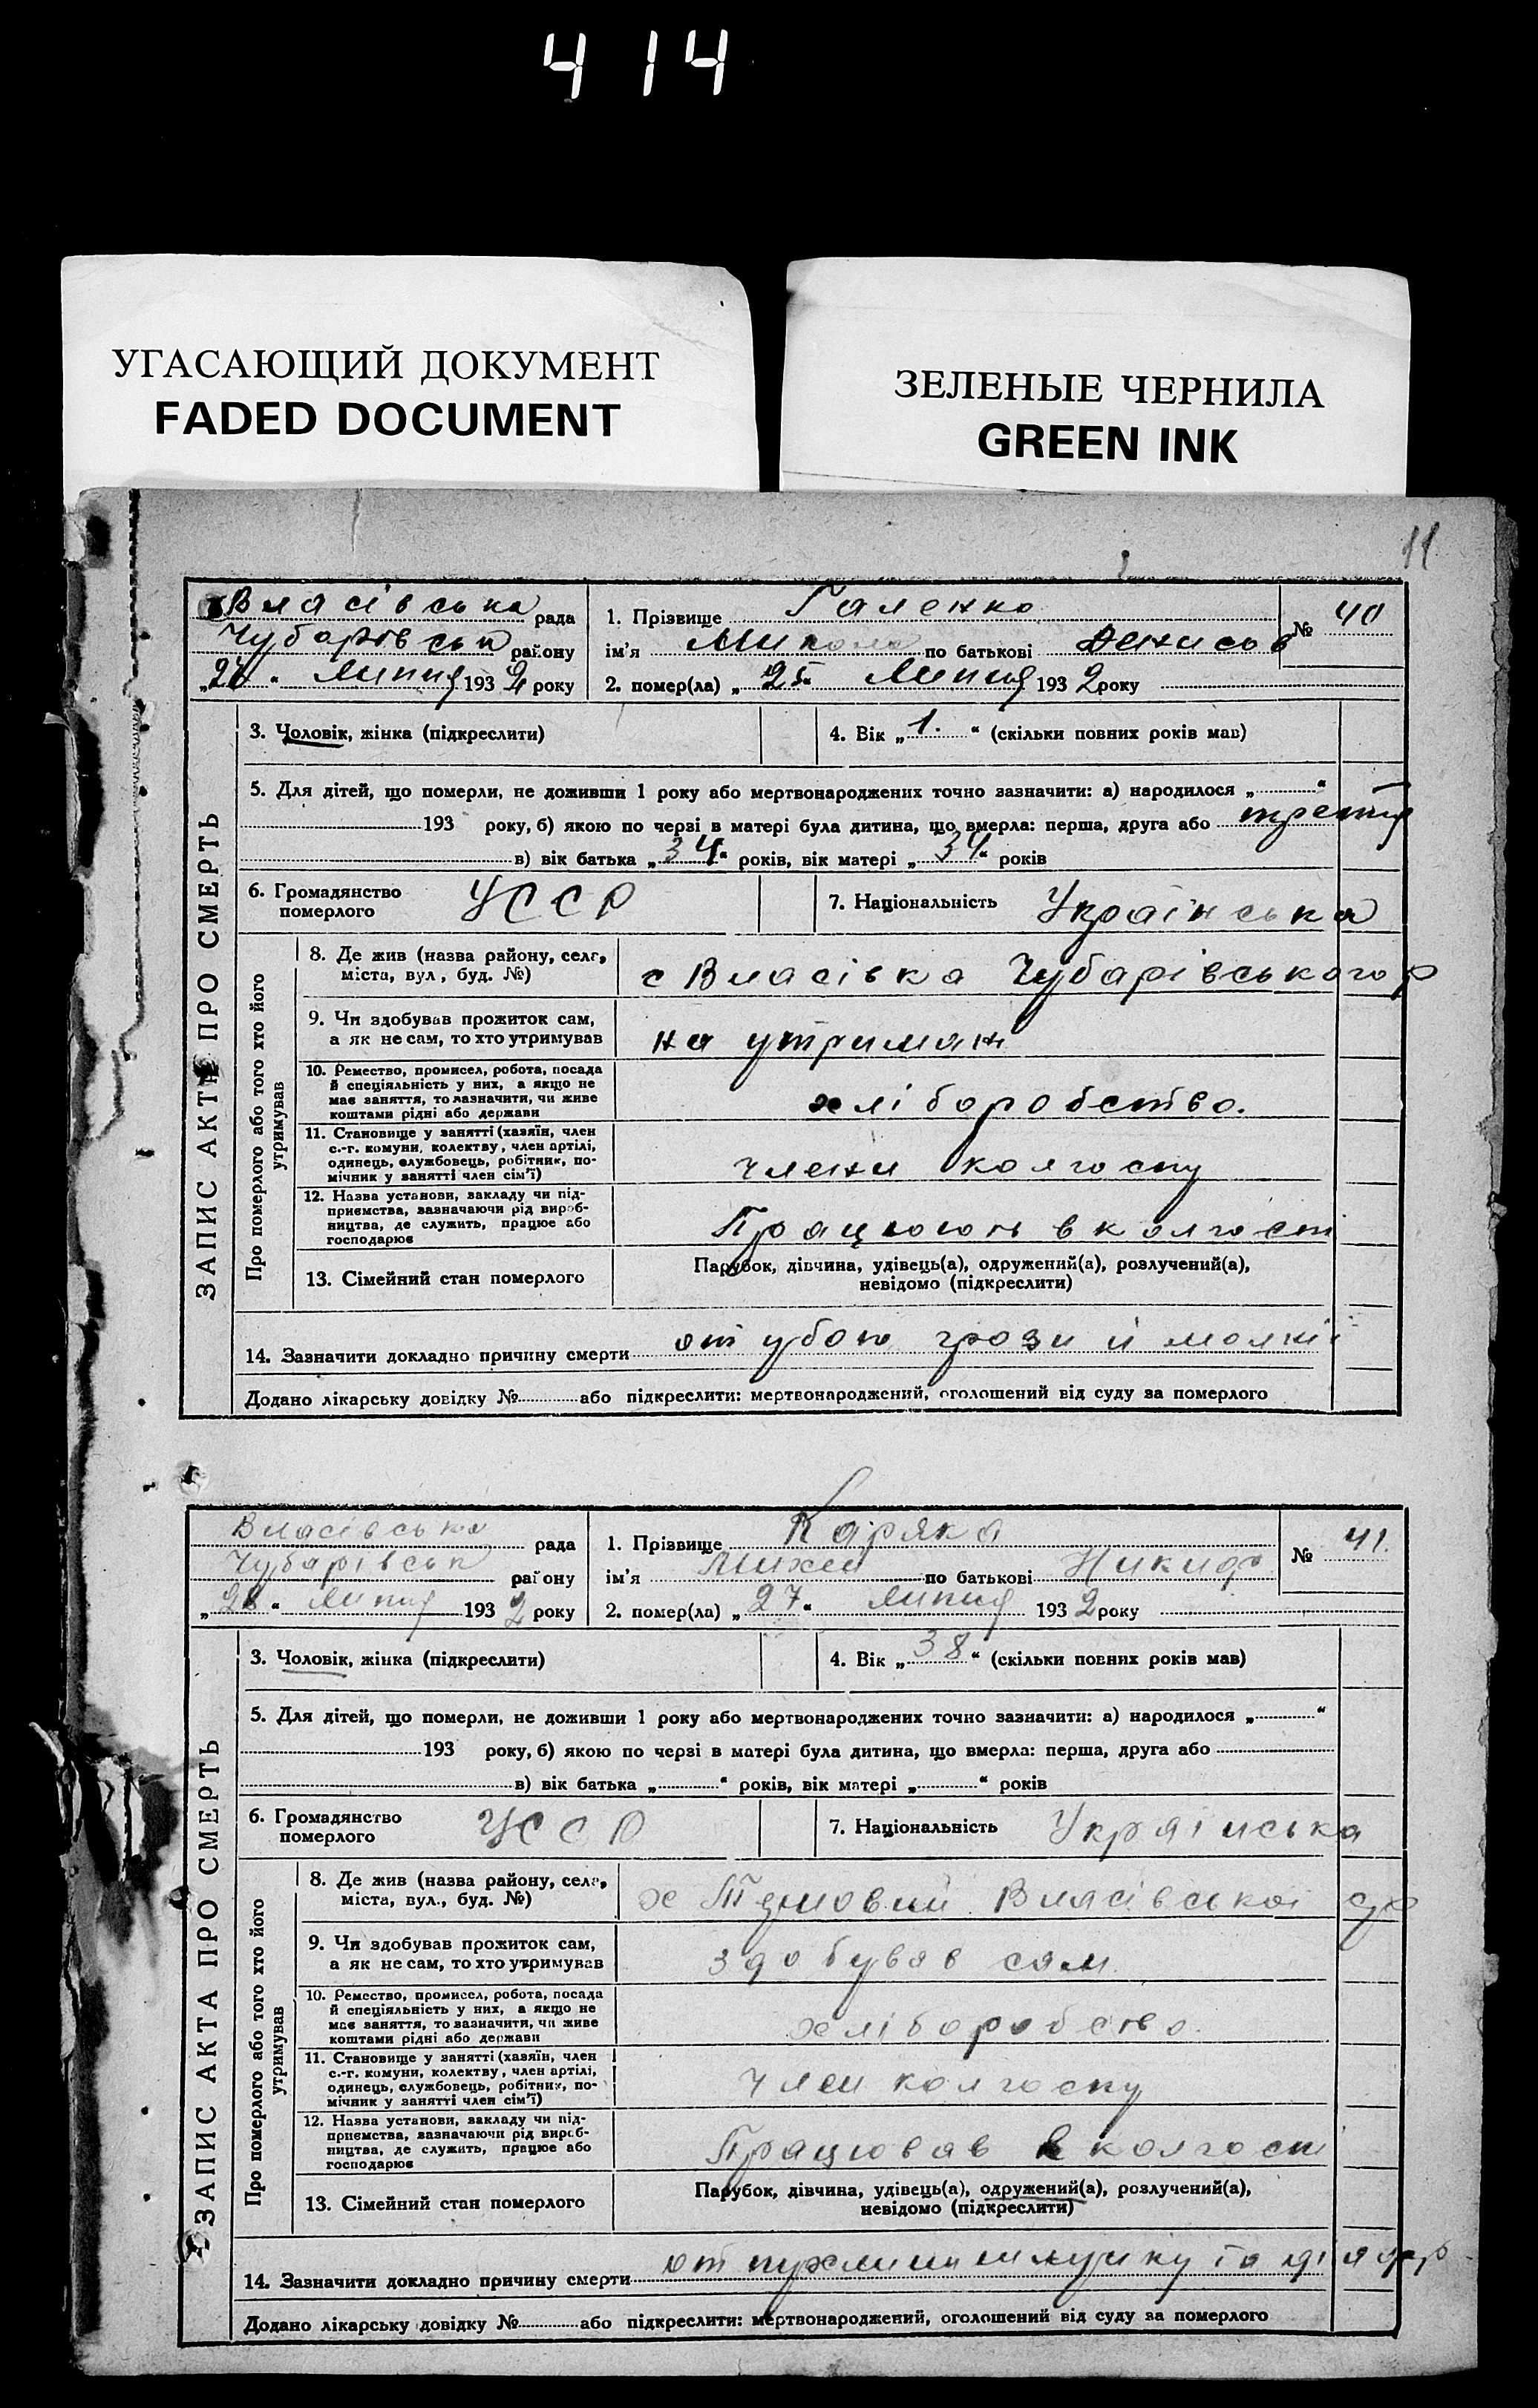 414
УГАСАЮЩИЙ ДОКУМЕНТ
FADED DOCUMENT
ЗЕЛЕНЫЕ ЧЕРНИЛА
GREEN INK
11
ЗАПИС АКТА ПРО СМЕРТЬ
Власівська рада
Чубарівськ району
„ “ Липня 1932 року
1. Прізвище Галенко
№ 40
ім’я Микола по батькові Денисов
2. помер(ла) „25“ Липня 1932 року
3. Чоловік, жінка (підкреслити)
4. Вік „1.“ (скільки повних років мав)
5. Для дітей, що померли, не доживши 1 року або мертвонароджених точно зазначити: а) народилося „ “
193 року, б) якою по черзі в матері була дитина, що вмерла: перша, друга або третя
в) вік батька „34“ років, вік матері „34“ років
6. Громадянство померлого УССР
7. Національність Українська
Про померлого або того хто його утримував
8. Де жив (назва району, села,
міста, вул, буд. №)
с Власівка Чубарівського р
9. Чи здобував прожиток сам,
а як не сам, то хто утримував
на утриман
10. Ремество, промисел, робота, посада
й спеціяльність у них, а якщо не
має заняття, то зазначити, чи живе
коштами рідні або держави
хліборобство.
11. Становище у занятті (хазяїн, член
с.-г. комуни, колективу, член артілі,
одинець, службовець, робітник, по-
мічник у занятті член сім’ї)
члени колгоспу
12. Назва установи, закладу чи під-
приємства, зазначаючи рід вироб-
ництва, де служить, працює або
господарює
Працюють в колгосп
13. Сімейний стан померлого
Парубок, дівчина, удівець(а), одружений(а), розлучений(а),
невідомо (підкреслити)
14. Зазначити докладно причину смерти от убою грози й молнії
Додано лікарську довідку № або підкреслити: мертвонароджений, оголошений від суду за померлого
ЗАПИС АКТА ПРО СМЕРТЬ
Власівська рада
Чубарівськ району
„28“ Липня 1932 року
1. Прізвище Каряка
№ 41.
ім’я Михей по батькові Никиф
2. помер(ла) „27“ Липня 1932 року
3. Чоловік, жінка (підкреслити)
4. Вік „38“ (скільки повних років мав)
5. Для дітей, що померли, не доживши 1 року або мертвонароджених точно зазначити: а) народилося „ “
193 року, б) якою по черзі в матері була дитина, що вмерла: перша, друга або
в) вік батька „ “ років, вік матері „ “ років
6. Громадянство померлого УССР
7. Національність Українська
Про померлого або того хто його утримував
8. Де жив (назва району, села,
міста, вул., буд. №)
х Власівської ср
9. Чи здобував прожиток сам,
а як не сам, то хто утримував
здобував сам.
10. Ремество, промисел, робота, посада
й спеціяльність у них, а якщо не
має заняття, то зазначити, чи живе
коштами рідні або держави
хліборобство.
11. Становище у занятті (хазяїн, член
с.-г. комуни, колективу, член артілі,
одинець, службовець, робітник, по-
мічник у занятті член сім’ї)
член колгоспу
12. Назва установи, закладу чи під-
приємства, зазначаючи рід вироб-
ництва, де служить, працює або
господарює
Працював в колгосп
13. Сімейний стан померлого
Парубок, дівчина, удівець(а), одружений(а), розлучений(а),
невідомо (підкреслити)
14. Зазначити докладно причину смерти от
Додано лікарську довідку № або підкреслити: мертвонароджений, оголошений від суду за померлого